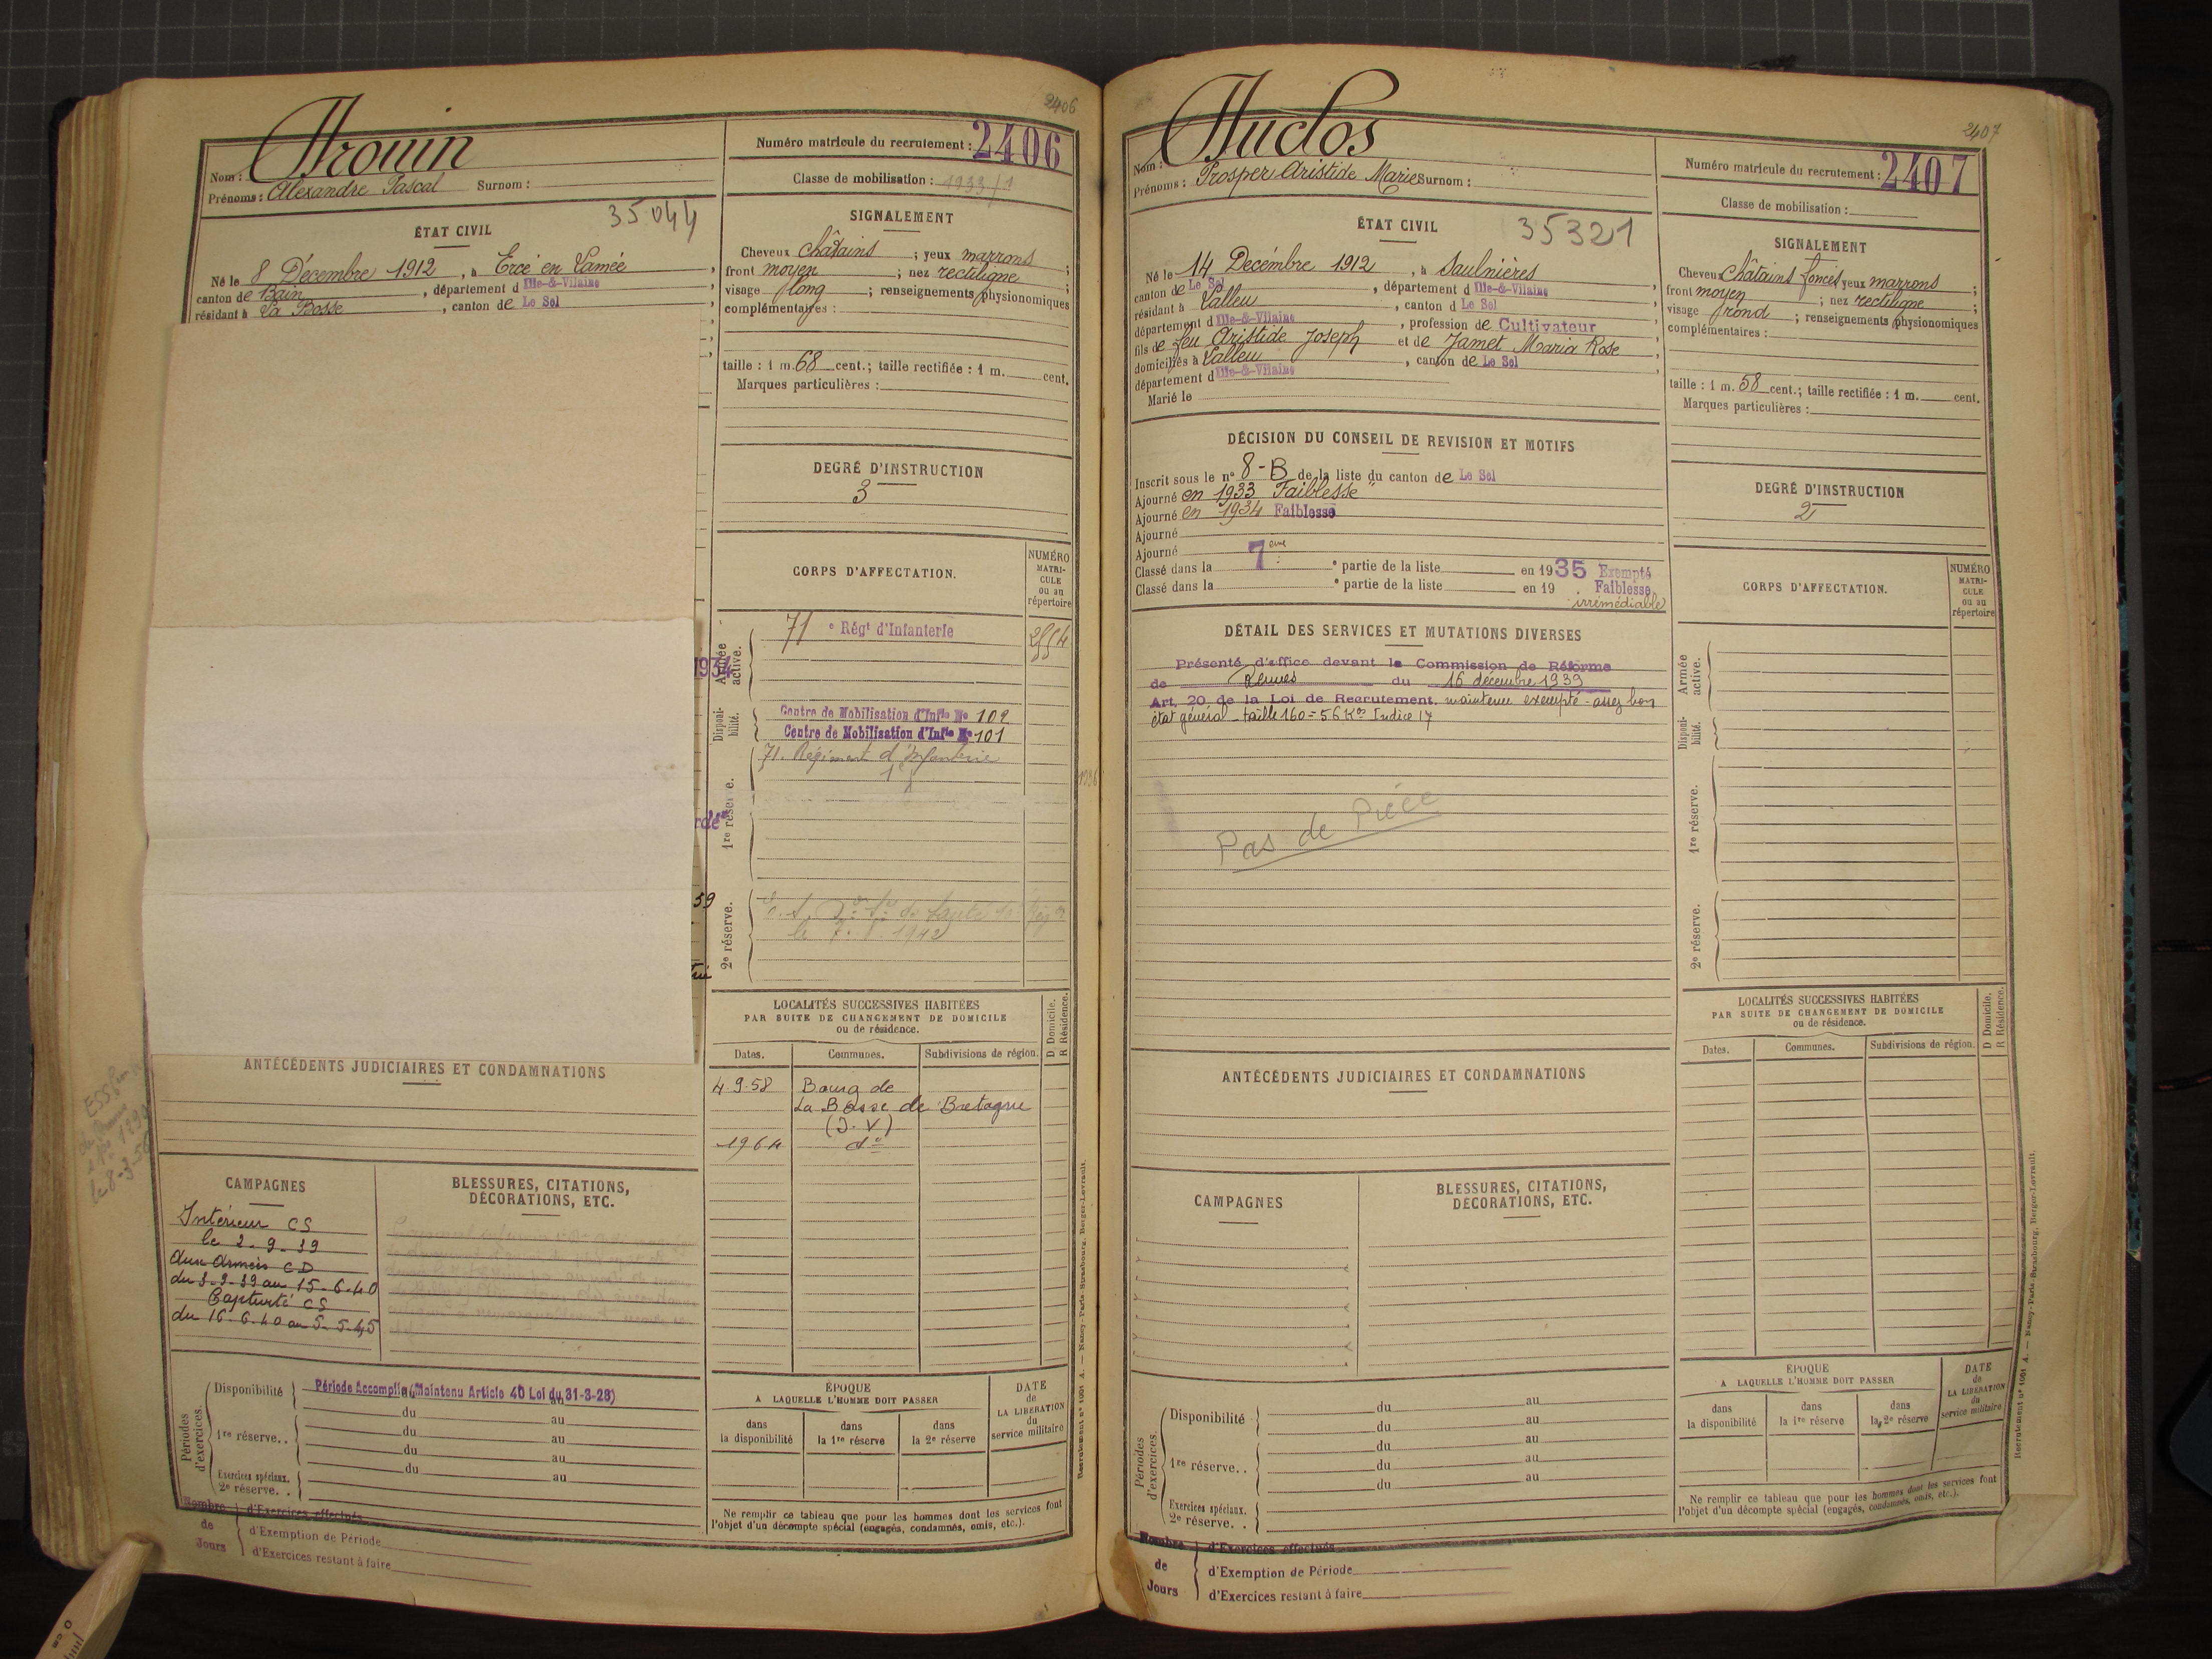 2406
Nom : Drouin
Prénoms : Alexandre Pascal Surnom :
Numéro matricule du recrutement : 2406
Classe de mobilisation : 1933/1
35044
ÉTAT CIVIL
Né le 8 Décembre 1912, à Ercé en Lamée
canton de Bain, département d Ille-&-Vilaine
résidant à La Bosse, canton de Le Sel
SIGNALEMENT
Cheveux châtains ; yeux marrons ;
front moyen ; nez rectiligne ;
visage long ; renseignements physionomiques
complémentaires :
taille : 1 m. 68 cent.; taille rectifiée : 1 m. cent.
Marques particulières :
DEGRÉ D'INSTRUCTION
3
CORPS D'AFFECTATION.
NUMÉRO
MATRI-
CULE
ou au
répertoire
Armée active.
71 e Régt d'Infanterie
1934
Disponi-
bilité.
Centre de Mobilisation d'Infie No 102
Centre de Mobilisation d'Infie No 101
71. Régiment d'Infanterie
1re réserve.
2e réserve.
59
le 7. 1. 1942
LOCALITÉS SUCCESSIVES HABITÉES
PAR SUITE DE CHANGEMENT DE DOMICILE
ou de résidence.
D Domicile.
R Résidence.
Dates. Communes. Subdivisions de région.
4.9.58 Bourg de
La Bosse de Bretagne
(I.V)
1964 do
ANTÉCÉDENTS JUDICIAIRES ET CONDAMNATIONS
CAMPAGNES
Intérieur CS
le 2-9-39
Aux Armées CD
du 3-9-39 au 15-6-40
Captivité CS
du 16-6-40 au 5-5-45
BLESSURES, CITATIONS,
DÉCORATIONS, ETC.
Périodes
d'exercices.
Disponibilité Période Accomplie (Maintenu Article 40 Loi du 31-3-28)
du au
1re réserve. . du au
du au
du au
Exercices spéciaux.
2e réserve. .
Nombre de Jours
d'Exercices effectués
d'Exemption de Période
d'Exercices restant à faire
ÉPOQUE
A LAQUELLE L'HOMME DOIT PASSER
dans la disponibilité
dans la 1re réserve
dans la 2e réserve
DATE
de
LA LIBÉRATION
du
service militaire
Ne remplir ce tableau que pour les hommes dont les services font
l'objet d'un décompte spécial (engagés, condamnés, omis, etc.).
Recrutement n° 1001 A. — Nancy-Paris-Strasbourg, Berger-Levrault.
2407
Nom : Duclos
Prénoms : Prosper Aristide Marie Surnom :
Numéro matricule du recrutement : 2407
Classe de mobilisation :
35321
ÉTAT CIVIL
Né le 14 Décembre 1912, à Saulnières
canton de Le Sel, département d Ille-&-Vilaine
résidant à Lalleu, canton d Le Sel
département d Ille-&-Vilaine, profession de Cultivateur
fils de feu Aristide Joseph et de Jamet Maria Rose
domiciliés à Lalleu, canton de Le Sel
département d Ille-&-Vilaine
Marié le
SIGNALEMENT
Cheveux châtains foncés yeux marrons ;
front moyen ; nez rectiligne ;
visage rond ; renseignements physionomiques
complémentaires :
taille : 1 m. 58 cent.; taille rectifiée : 1 m. cent.
Marques particulières :
DÉCISION DU CONSEIL DE REVISION ET MOTIFS
Inscrit sous le n° 8-B de la liste du canton de Le Sel
Ajourné en 1933 "Faiblesse"
Ajourné en 1934 Faiblesse
Ajourné
Ajourné
Classé dans la 7eme e partie de la liste en 1935 Exempté
Classé dans la e partie de la liste en 19 Faiblesse
irrémédiable
DEGRÉ D'INSTRUCTION
2
DÉTAIL DES SERVICES ET MUTATIONS DIVERSES
Présenté d'office devant la Commission de Réforme
de Rennes du 16 décembre 1939
Art. 20 de la Loi de Recrutement, maintenu exempté - assez bon
état général - taille 160 = 56 Kos Indice 17
Pas de Pièce
CORPS D'AFFECTATION.
NUMÉRO
MATRI-
CULE
ou au
répertoire
Armée active.
Disponi-
bilité.
1re réserve.
2e réserve.
LOCALITÉS SUCCESSIVES HABITÉES
PAR SUITE DE CHANGEMENT DE DOMICILE
ou de résidence.
D Domicile.
R Résidence.
Dates. Communes. Subdivisions de région.
ANTÉCÉDENTS JUDICIAIRES ET CONDAMNATIONS
CAMPAGNES
BLESSURES, CITATIONS,
DÉCORATIONS, ETC.
Périodes
d'exercices.
Disponibilité du au
du au
1re réserve. . du au
du au
du au
Exercices spéciaux.
2e réserve. .
Nombre de Jours
d'Exercices effectués
d'Exemption de Période
d'Exercices restant à faire
ÉPOQUE
A LAQUELLE L'HOMME DOIT PASSER
dans la disponibilité
dans la 1re réserve
dans la 2e réserve
DATE
de
LA LIBÉRATION
du
service militaire
Ne remplir ce tableau que pour les hommes dont les services font
l'objet d'un décompte spécial (engagés, condamnés, omis, etc.).
Recrutement n° 1001 A. — Nancy-Paris-Strasbourg, Berger-Levrault.